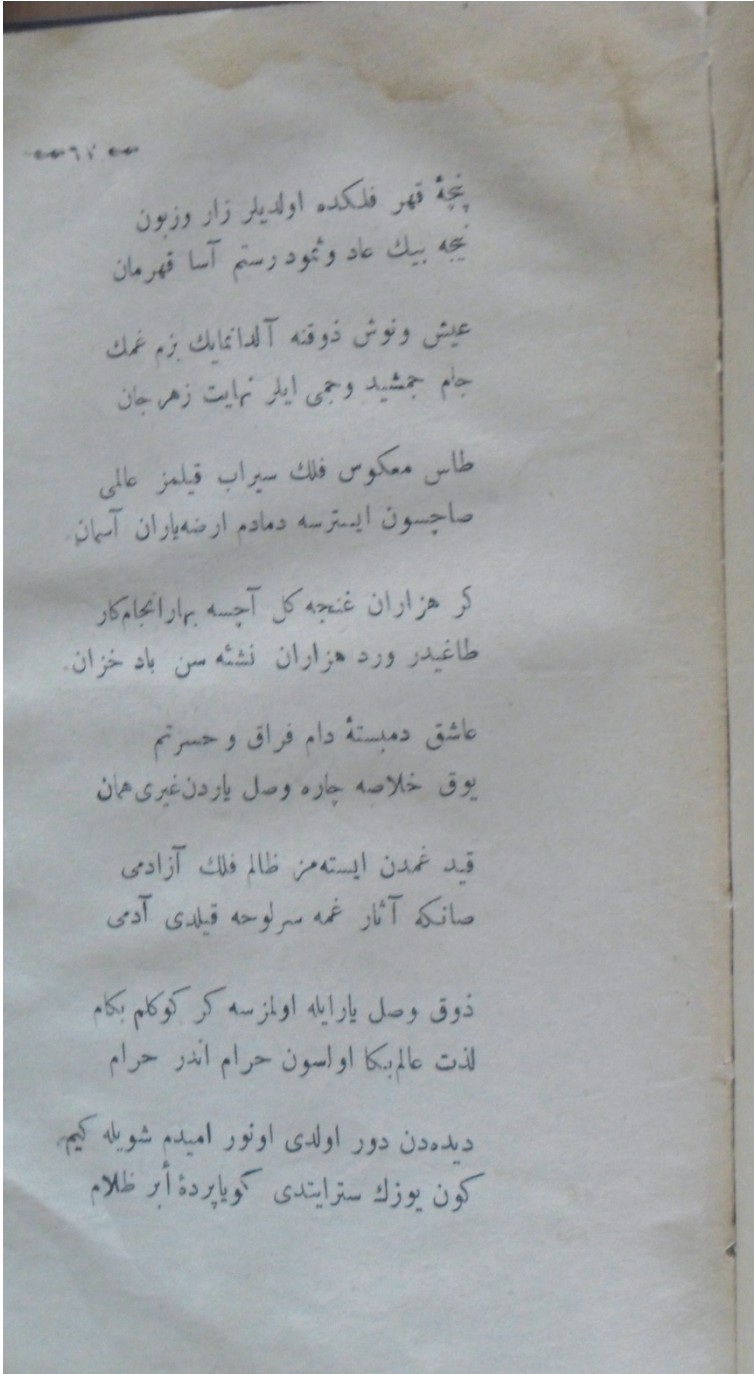 ٦٧
پنچهٔ قهر فلکده اولدیلر زار وزبون
نیجه بیك عاد وثمود رستم آسا قهرمان
عیش ونوش ذوقنه آلدانمایك بزم غمك
جام جمشید وجمی ایلر نهایت زهر جان
طاس معکوس فلك سیراب قیلمز عالمی
صاچسون ایسترسه دمادم ارضه یاران آسمان
کر هزاران غنجه کل آچسه بهار انجامکار
طاغیدر ورد هزاران نشئه سن باد خزان
عاشق دمبستهٔ دام فراق و حسرتم
یوق خلاصه چاره وصل یاردن غیری همان
قید غمدن ایسته‌مز ظالم فلك آزادمی
صانکه آثار غمه سرلوحه قیلدی آدمی
ذوق وصل یارایله اولمز سه کر کوکلم بکام
لذت عالم بکا اولسون حرام اندر حرام
دیده‌دن دور اولدی اونور امیدم شویله کیم
کون یوزك سترایتدی کویا پردهٔ أبر ظلام